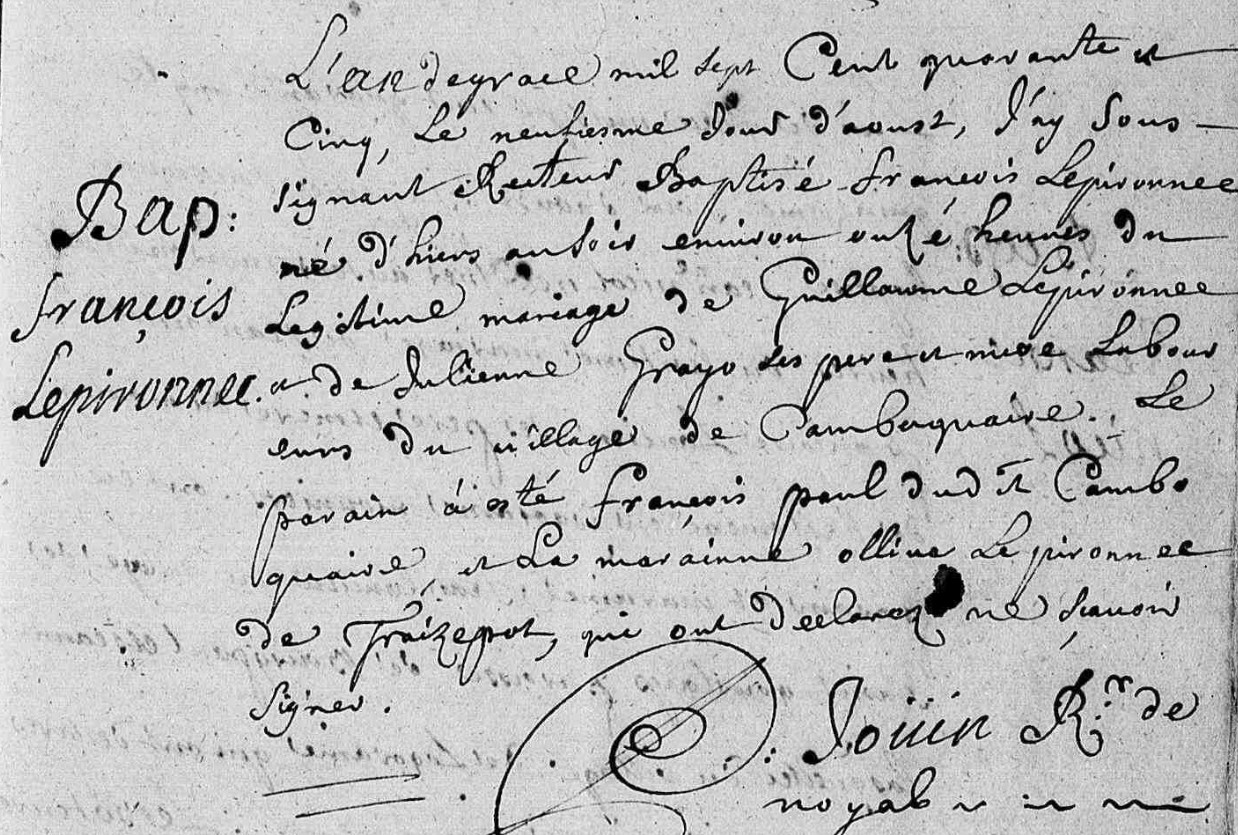 L'an degrace mil sept Cent quarante et
Cinq, Le neufiesme Jour d'aoust, J'ay Sous-
signant Recteur Baptisé francois Lepironnec
né d'hiers au soir environ onzé heures du
Legitime mariage de Guillaume Lepironnec
et de Julienne Grayo ses pere et mere Labour
eurs du village de Camboquaire. Le
parain à esté françois paul dudit Cambo
quaire, et La marainne ollive Le pironnec
de Fraizepot, qui ont declarez ne scavoir
signer.
Bap:
françois
Lepironnec.
Jouin R.r de
noyal